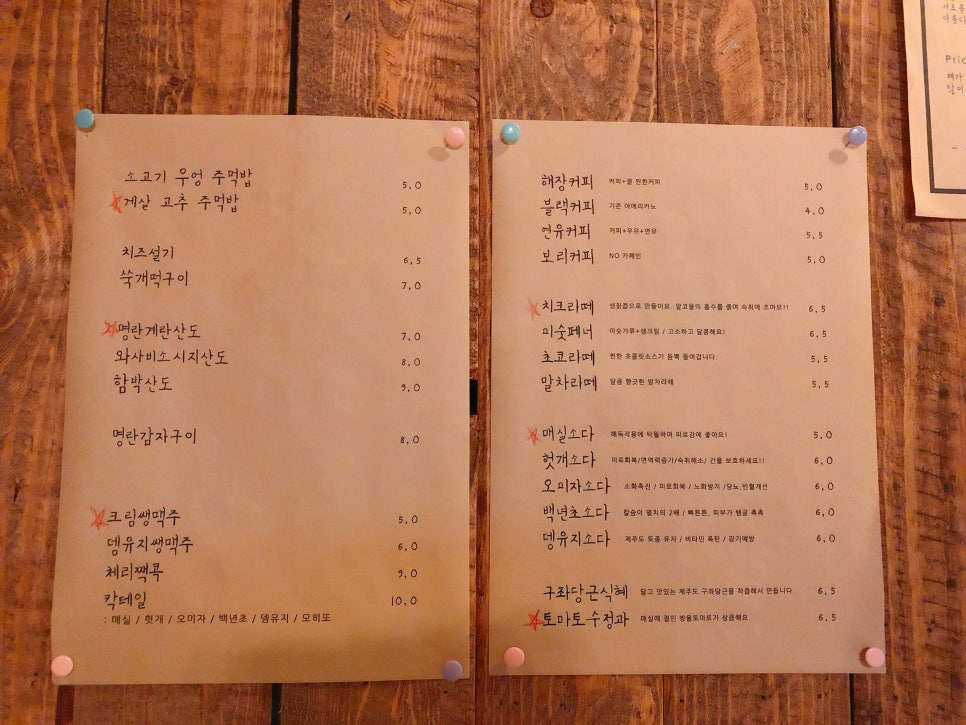 소고기 우엉 주먹밥 5,0
게살 고추 주먹밥 5,0
치즈설기 6,5
쑥개떡구이 7,0
명란계란산도 7,0
와사비소시지산도 8,0
함박산도 9,0
명란감자구이 8,0
크림쌩맥주 5,0
뎅유지쌩맥주 6,0
체리짹콕 9,0
칵테일 10,0
: 매실 / 헛개 / 오미자 / 백년초 / 뎅유지 / 모히또
해장커피 커피+꿀 찐한커피 5,0
블랙커피 기존 아메리카노 4,0
연유커피 커피+우유+연유 5,5
보리커피 NO 카페인 5,0
치크라떼 생칡즙으로 만들어요. 알코올의 흡수를 줄여 숙취에 조아요!! 6,5
미숫페너 미숫가루+생크림 / 고소하고 달콤해요! 6,5
초코라떼 찐한 초콜릿소스가 듬뿍 들어갑니다. 5,5
말차라떼 달콤 향긋한 말차라떼 5,5
매실소다 해독작용에 탁월하며 피로감에 좋아요! 5,0
헛개소다 피로회복/면역력증가/숙취해소/ 간을 보호하세요!! 6,0
오미자소다 소화촉진 / 피로회복 / 노화방지 /당뇨,빈혈개선 6,0
백년초소다 칼슘이 멸치의 2배 / 뼈튼튼, 피부가 탱글 촉촉 6,0
뎅유지소다 제주도 토종 유자 / 비타민 폭탄 / 감기예방 6,0
구좌당근식혜 달고 맛있는 제주도 구좌당근을 착즙해서 만듭니다. 6,5
토마토수정과 매실에 절인 방울토마토가 상큼해요. 6,5
서로를
아름다
Pric
제가
많이